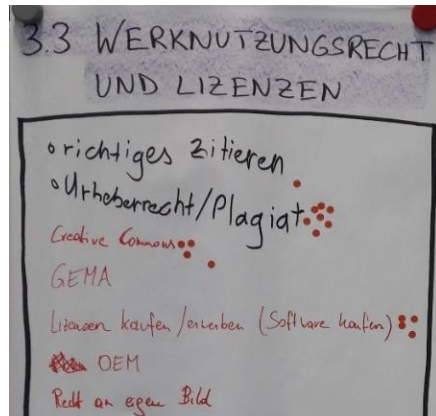 3.3 WERKNUTZUNGSRECHT
UND LIZENZEN
richtiges Zitieren
Urheberrecht/Plagiat
Creative Commons
GEMA
Lizenzen kaufen/erwerben (Software kaufen)
OEM
Recht an eigen Bild